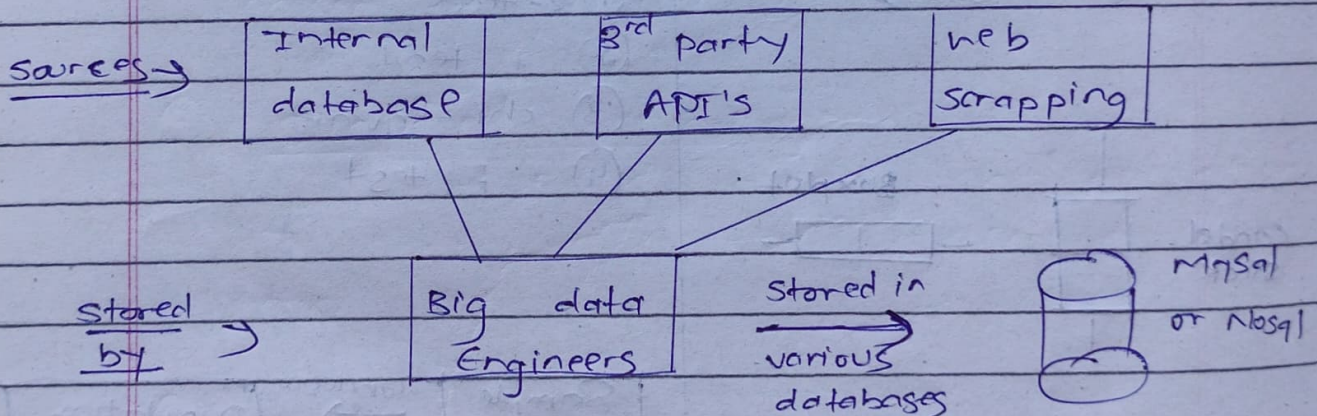 Sources →
Internal
database
3rd party
API's
web
scrapping
Stored
by
Big data
Engineers
Stored in
various
databases
Mysql
or Nosql